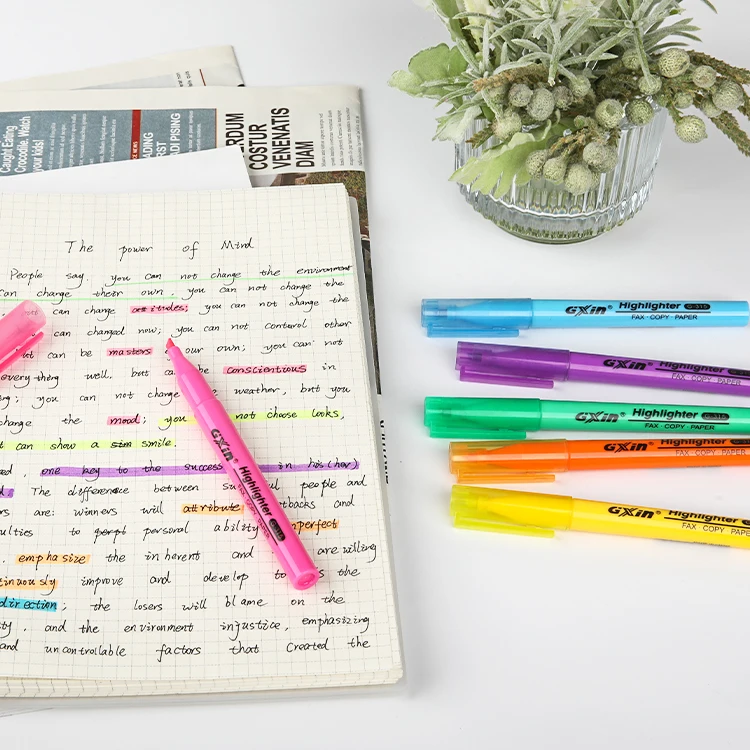 Caught Eating
Crocodile, Watch
your kids!
COSTUR
VENENATIS
DIAM
The power of Mind
People say, you can not change the environment
can change their own, you can not change the
can change attitudes; you can not change the
can changed now; you can not control other
but can be masters our own; you can not
everything well, but can be conscientious in
you can not change weather, but you
change the mood; you not choose looks,
can show a smile.
one key to the success in his(her)
The difference between people and
are: winners will attribute and
to personal ability
emphasize the inherent and are willing
improve and develop the
direction; the losers will blame on the
and the environment injustice, emphasizing
and uncontrollable factors that created the
GXin® Highlighter
GXin® Highlighter G-315
FAX · COPY · PAPER
GXin® Highlighter
FAX · COPY · PAPER
GXin® Highlighter
FAX · COPY · PAPER
GXin® Highlighter
FAX · COPY · PAPER
GXin® Highlighter
FAX · COPY · PAPER